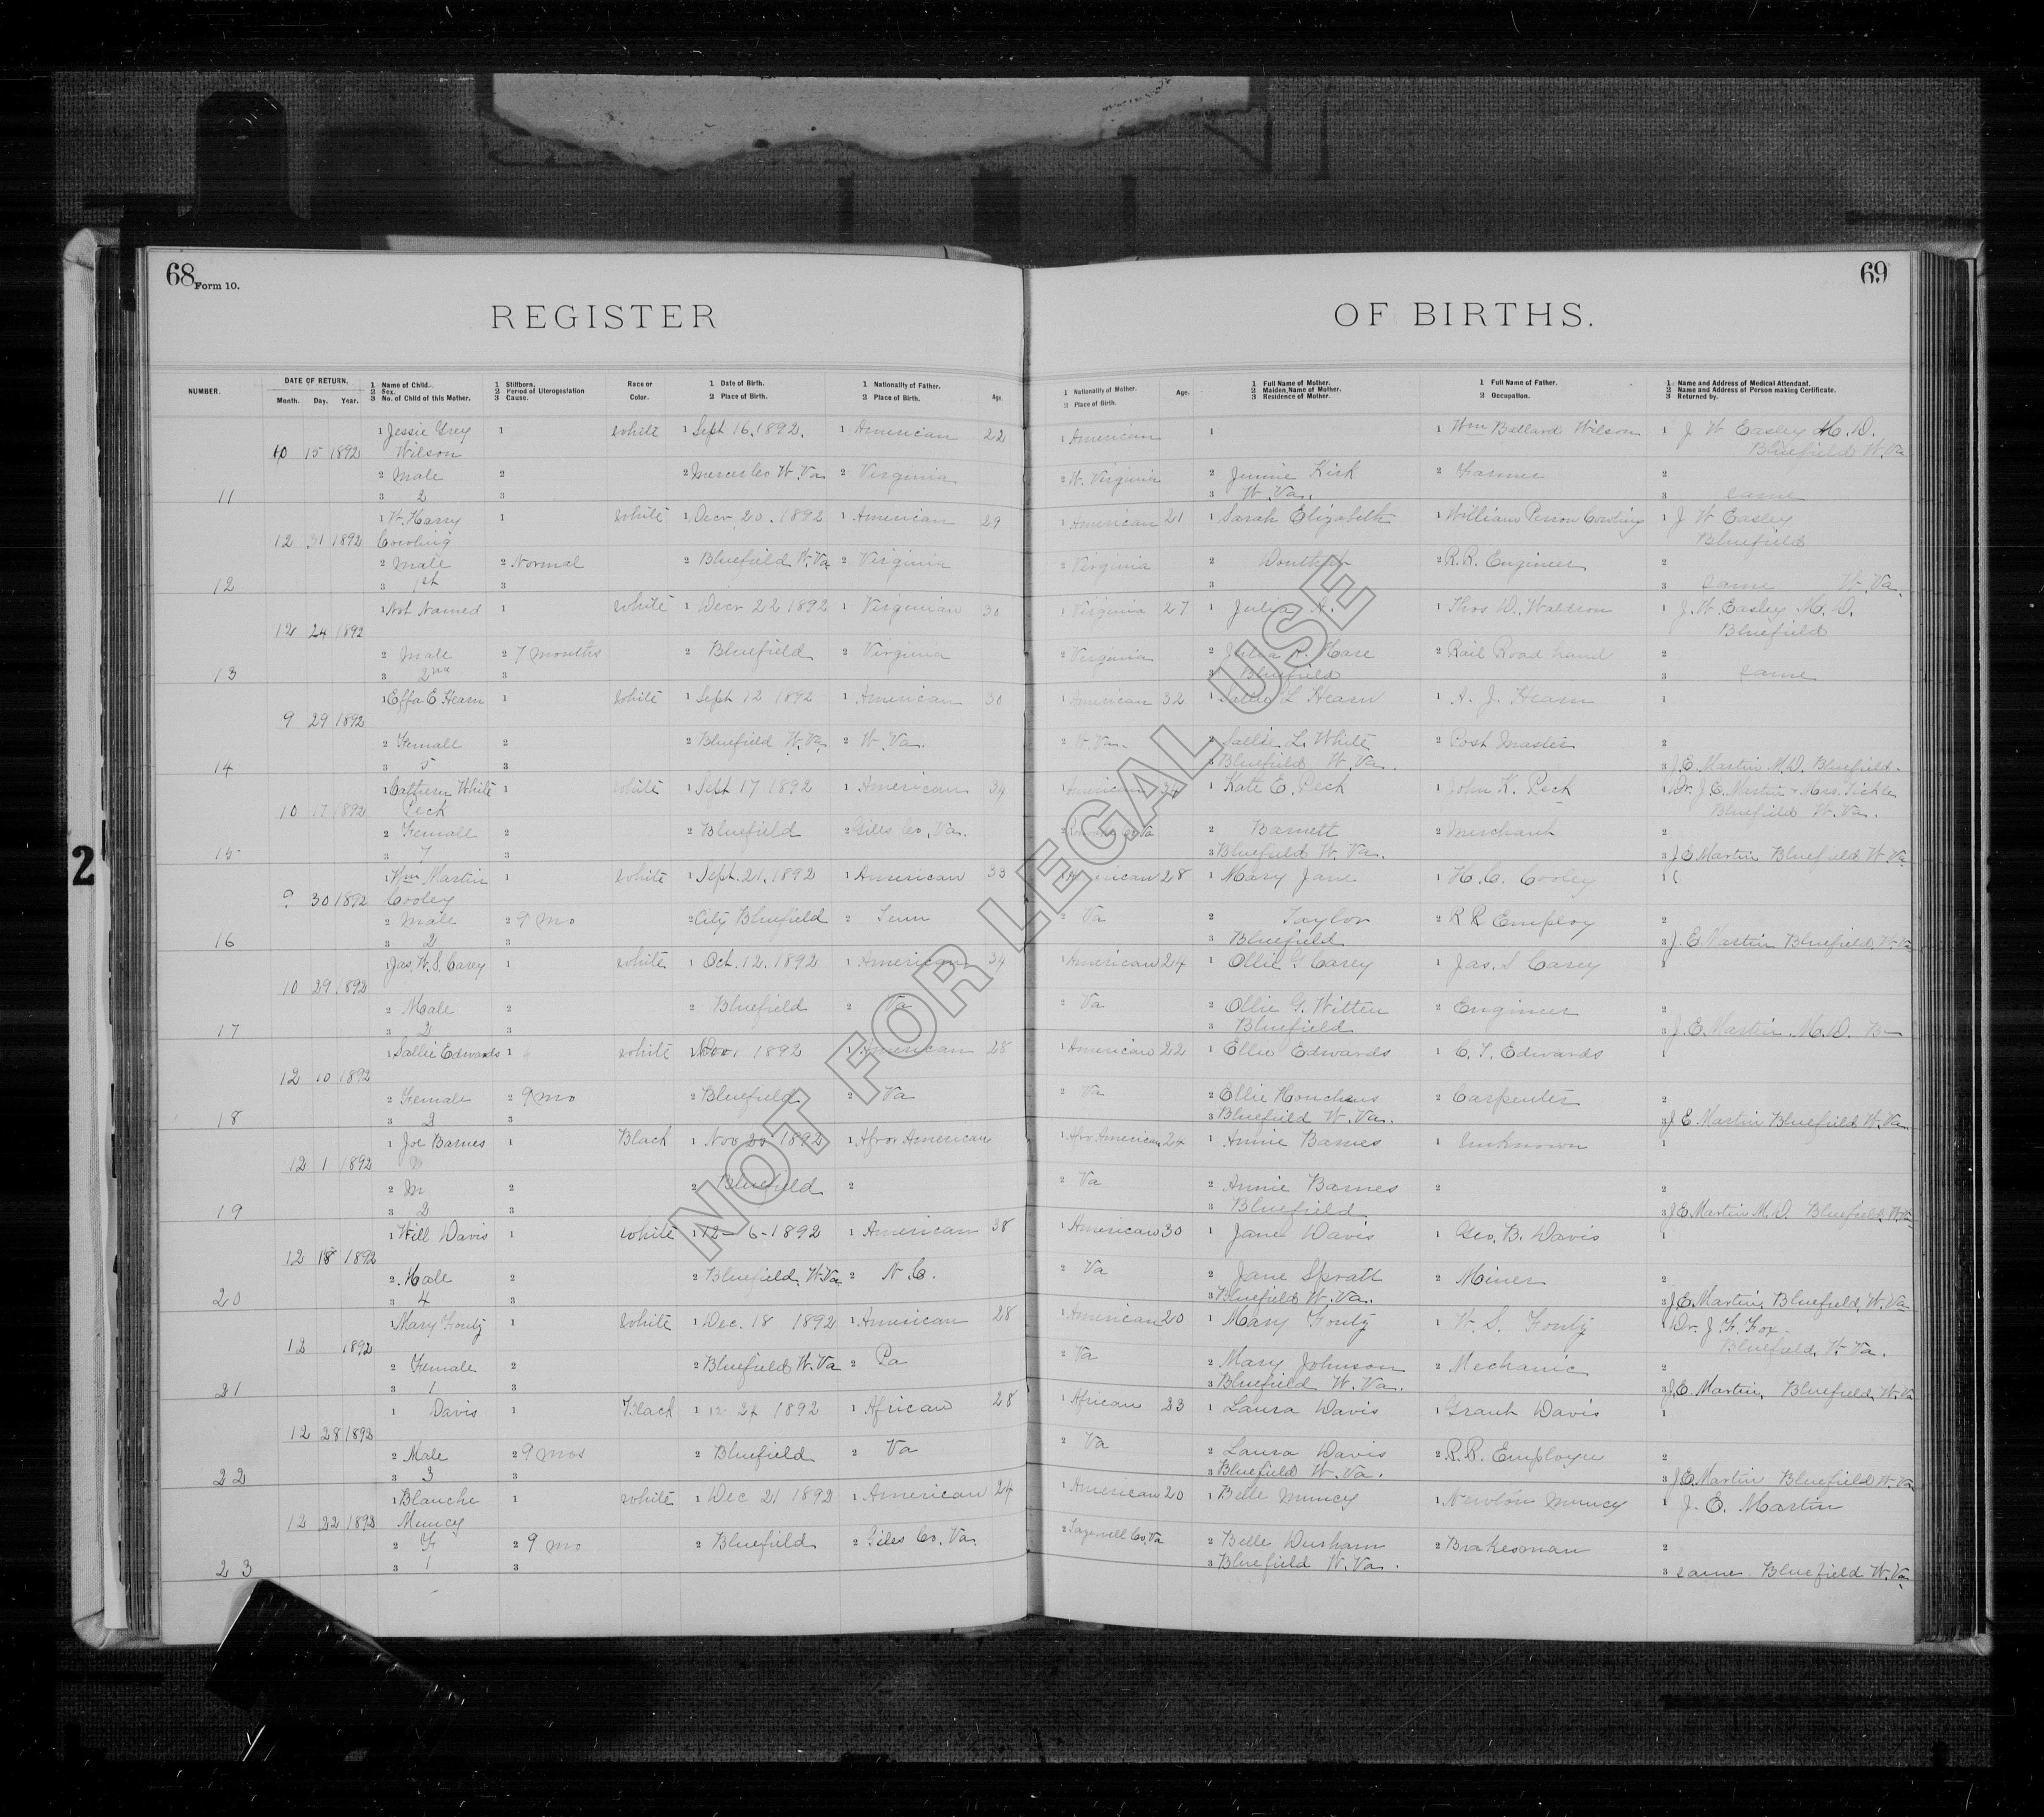 68 Form 10.
69
REGISTER OF BIRTHS.
NUMBER.
DATE OF RETURN.
Month. Day. Year.
1 Name of Child.
2 Sex.
3 No. of Child of this Mother.
1 Stillborn.
2 Period of Uterogestation
3 Cause.
Race or Color.
1 Date of Birth.
2 Place of Birth.
1 Nationality of Father.
2 Place of Birth.
Age.
1 Nationality of Mother.
2 Place of Birth.
Age.
1 Full Name of Mother.
2 Maiden Name of Mother.
3 Residence of Mother.
1 Full Name of Father.
2 Occupation.
1 Name and Address of Medical Attendant.
2 Name and Address of Person making Certificate.
3 Returned by.
1 Jessie Grey 1 white 1 Sept 16, 1892. 1 American 22 1 American 1 1 Wm Ballard Wilson 1 J W Easley M.D.
10 15 1892 Wilson Bluefield W.Va
2 Male 2 2 Mercer Co W.Va 2 Virginia 2 W. Virginia 2 Jennie Kirk 2 Farmer 2
11 3 2 3 3 W.Va. 3 same
1 W. Harry 1 white 1 Decr 20. 1892 1 American 29 1 American 21 1 Sarah Elizabeth 1 William Cowling 1 J W Easley
12 31 1892 Cowling Bluefield
2 Male 2 Normal 2 Bluefield W.Va 2 Virginia 2 Virginia 2 Douthat 2 R.R. Engineer 2
12 3 1st 3 3 3 same W.Va.
1 Not Named 1 white 1 Decr 22 1892 1 Virginian 30 1 Virginia 27 1 Julia A. 1 Thos D. Waldron 1 J. W. Easley M.D.
12 24 1892 Bluefield
2 Male 2 7 months 2 Bluefield 2 Virginia 2 Virginia 2 Julia A. Hare 2 Rail Road hand 2
13 3 2nd 3 3 Bluefield 3 same
1 Effa E Hearn 1 white 1 Sept 12 1892 1 American 30 1 American 32 1 Sallie L Hearn 1 A. J. Hearn 1
9 29 1892
2 Female 2 2 Bluefield W.Va 2 W.Va. 2 W.Va. 2 Sallie L. White 2 Post Master 2
14 3 5 3 3 Bluefield W.Va. 3 J.E. Martin M.D. Bluefield.
1 Cathern White 1 white 1 Sept 17 1892 1 American 34 1 American 34 1 Kate E. Peck 1 John K. Peck 1 Dr. J.E. Martin + Mrs. Tickle
10 17 1892 Peck Bluefield W.Va.
2 Female 2 2 Bluefield 2 Giles Co, Va. 2 Va 2 Barnett 2 Merchant 2
15 3 7 3 3 Bluefield W.Va. 3 J E Martin Bluefield W Va
1 Wm Martin 1 white 1 Sept. 21, 1892 1 American 33 1 American 28 1 Mary Jane 1 H. C. Cooley 1
9 30 1892 Cooley
2 Male 2 9 mo 2 City Bluefield 2 Tenn 2 Va 2 Taylor 2 R R Employ 2
16 3 2 3 3 Bluefield 3 J. E. Martin Bluefield, W.Va
1 Jas. W. S. Carey 1 white 1 Oct. 12. 1892 1 American 34 1 American 24 1 Ollie G Carey 1 Jas. S Carey 1
10 29 1892
2 Male 2 2 Bluefield 2 Va 2 Va 2 Ollie G. Witten 2 Engineer 2
17 3 2 3 3 Bluefield 3 J. E. Martin. M.D. B
1 Sallie Edwards 1 white 1 Nov. 1892 1 American 28 1 American 22 1 Ellie Edwards 1 C. T. Edwards 1
12 10 1892
2 Female 2 9 mo 2 Bluefield 2 Va 2 Va 2 Ellie Honchins 2 Carpenter 2
18 3 2 3 3 Bluefield W.Va. 3 J E Martin Bluefield W.Va
1 Joe Barnes 1 Black 1 Nov 20 1892 1 Afror American 1 Afro American 24 1 Annie Barnes 1 Unknown 1
12 1 1892
2 M 2 2 Bluefield 2 2 Va 2 Annie Barnes 2 2
19 3 2 3 3 Bluefield 3 J E Martin M.D. Bluefield W.Va
1 Will Davis 1 white 1 12-6-1892 1 American 38 1 American 30 1 Jane Davis 1 Geo. B. Davis 1
12 18 1892
2 Male 2 2 Bluefield W.Va 2 N.C. 2 Va 2 Jane Spratt 2 Miner 2
20 3 4 3 3 Bluefield W.Va. 3 J E. Martin, Bluefield, W.Va
1 Mary Foutz 1 white 1 Dec. 18 1892 1 American 28 1 American 20 1 Mary Foutz 1 W. S. Foutz 1 Dr. J. F. Fox
12 1892 Bluefield, W.Va.
2 Female 2 2 Bluefield W.Va 2 Pa 2 Va 2 Mary Johnson 2 Mechanic 2
21 3 1 3 3 Bluefield W.Va. 3 J.E. Martin, Bluefield, W.Va
1 Davis 1 Black 1 12 27 1892 1 African 28 1 African 23 1 Laura Davis 1 Grant Davis 1
12 28 1892
2 Male 2 9 mos 2 Bluefield 2 Va 2 Va 2 Laura Davis 2 R.R. Employee 2
22 3 3 3 3 Bluefield W.Va. 3 J.E. Martin Bluefield W.Va
1 Blanche 1 white 1 Dec 21 1892 1 American 24 1 American 20 1 Belle Muncy 1 Newton Muncy 1 J. E. Martin
12 22 1892 Muncy
2 F 2 9 mo 2 Bluefield 2 Giles Co. Va. 2 Tazewell Co, Va 2 Belle Durham 2 Brakesman 2
23 3 1 3 3 Bluefield W.Va. 3 same Bluefield W.Va
2
NOT FOR LEGAL USE